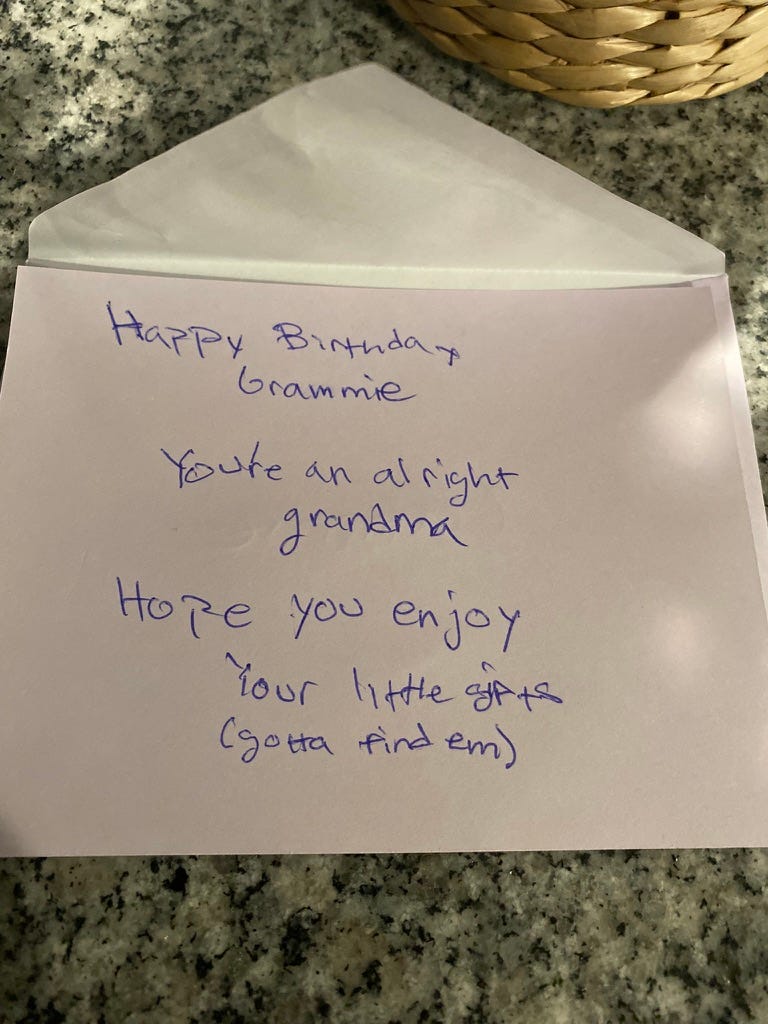 Happy Birthday
Grammie
You're an alright
grandma
Hope you enjoy
Your little gifts
(gotta find em)